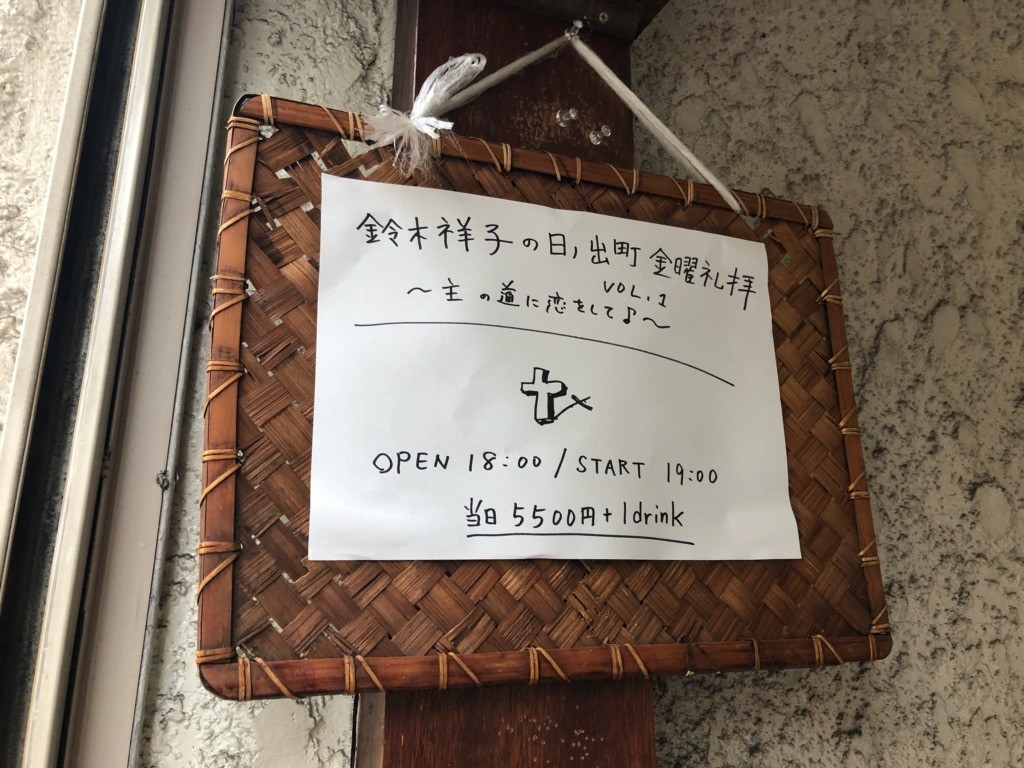 鈴木祥子の日,出町金曜礼拝
VOL.1
〜主の道に恋をして♪〜
OPEN 18:00 / START 19:00
当日 5500円+1drink